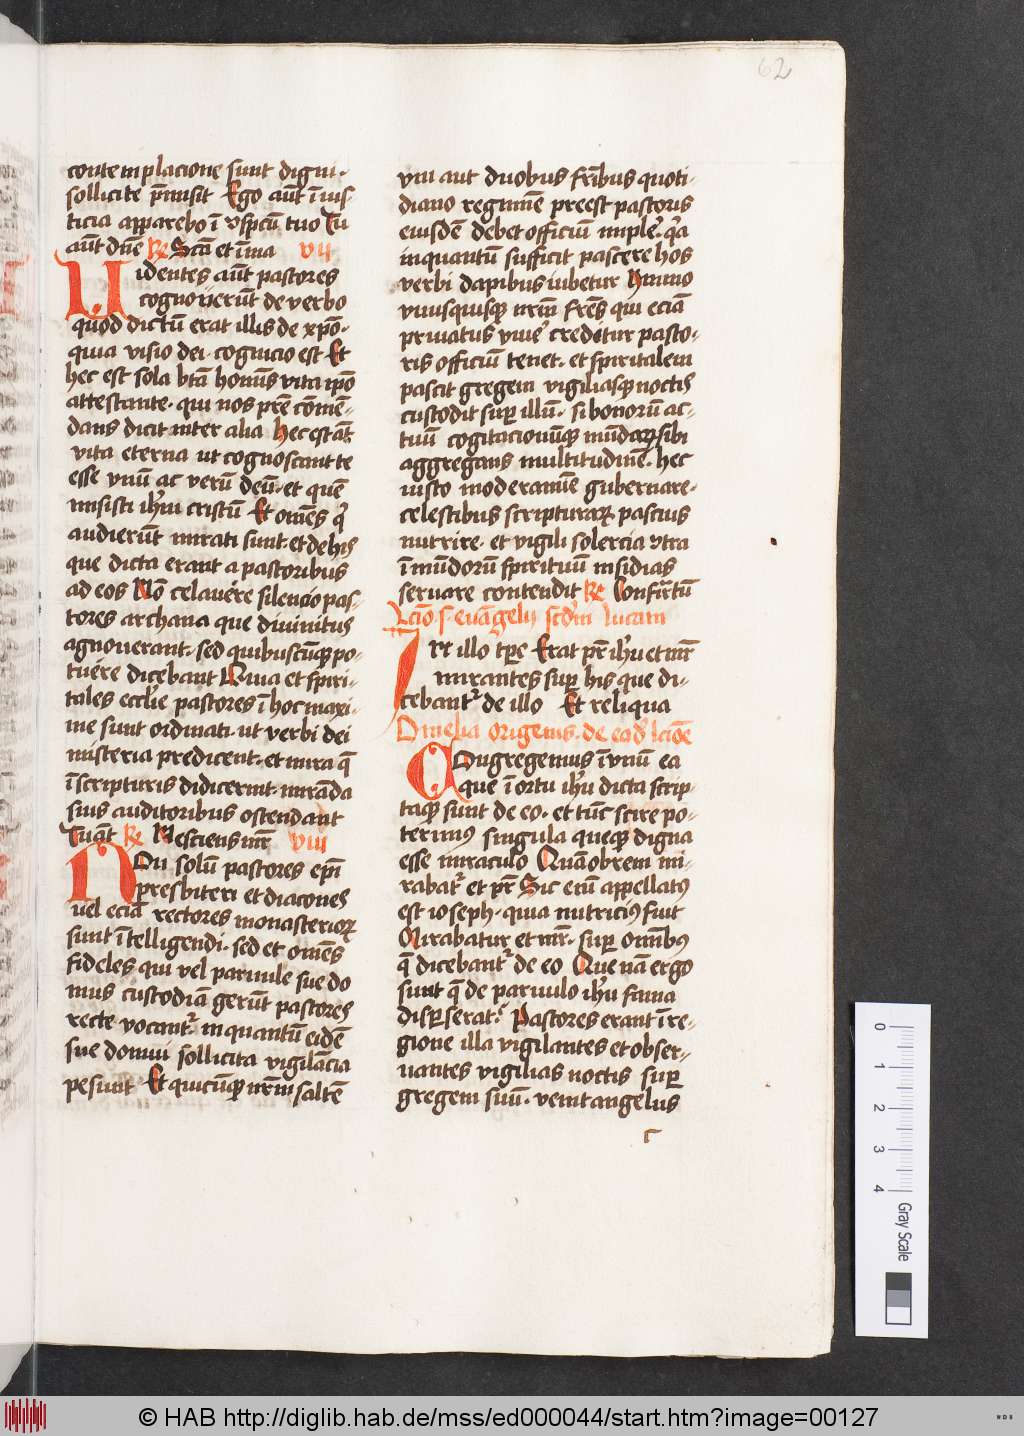 62
contemplacione sunt digni ·
sollicite p̄misit Ego aūt ī ius-
ticia apparebo ī ɔspc̄tu tuo Tu
aūt dn̄e R̷ Sc̄a et īma vii
Uidentes aūt pastores
cognouerūt de verbo
quod dictū erat illis de xp̄o ·
quia visio dei · cognicio est Et
hec est sola bt̄a hoīnis vita ip̄o
attestante · qui nos pr̄e cōmē-
dans dicit inter alia Hec est aūt
vita eterna ut cognoscant te
esse vnū ac verū deū · et quē
misisti ih̄m cristū Et om̄es q̄
audierūt mirati sunt et de his
que dicta erant a pastoribus
ad eos Nō celauēre silencio pas-
tores archana que diuinitus
agnouerant · sed quibuscūqꝫ po-
tuēre dicebant Quia et spiri-
tales eccl̄ie pastores ī hoc maxi-
me sunt ordinati · ut verbi dei
misteria predicent · et mira q̄
ī scripturis didicerint · mirāda
suis auditoribus ostendant
Tu aūt R̷ Nesciens mr̄ viii
Non solū pastores ep̄i
presbiteri et diacones
uel eciā rectores monasterioꝝ
sunt ītelligendi · sed et om̄es
fideles qui vel paruule sue do
mus custodiā gerūt pastores
recte vocantᷣ · inquantū eidē
sue domui sollicita vigilācia
pesunt Et quicūqꝫ nr̄m saltē
vni aut duobus fr̄ibus quoti-
diano regimīe preest pastoris
eiusdē debet officiū imple᷑ · qͥa
inquantū sufficit pascere hos
verbi dapibus iubetur Immo
vnusquisqꝫ nr̄m fr̄es qui eciā
priuatus viue᷑ creditur pasto-
ris officiū tenet · et spiritalem
pascit gregem vigiliasqꝫ noctis
custodit suꝑ illū · si bonorū ac-
tuū cogitacionūqꝫ mūdaꝝ sibi
aggregans multitudinē · hec
iusto moderamīe gubernare ·
celestibus scripturaꝝ pascuis
nutrire · et vigili solercia ɔtra
īmūdorū spirituū insidias
seruare contendit R̷ Confirᷓtū
Lc̄io · s · euāgelij scd̄m lucam
In illo tp̄e Erat pr̄ ih̄u et mr̄
mirantes suꝑ his que di-
cebantᷣ de illo Et reliqua
Omelia origenis · de eod̄ lc̄ioē
Congregemus ī vnū ea
que ī ortu ih̄u dicta scrip-
taqꝫ sunt de eo · et tūc scire po-
terimꝰ singula queqꝫ digna
esse miraculo Quāobrem mi-
rabatᷣ et pr̄ Sic eciī appellatꝰ
est ioseph · quia nutriciꝰ fuit
Mirabatur et mr̄ · suꝑ omībꝰ
q̄ dicebantᷣ de eo Que nā ergo
sunt q̄ de paruulo ih̄u fama
disꝑserat · Pastores erant ī re-
gione illa vigilantes et obser-
uantes vigilias noctis suꝑ
gregem suū · venit angelus
© HAB http://diglib.hab.de/mss/ed000044/start.htm?image=00127
0 1 2 3 4
Gray Scale